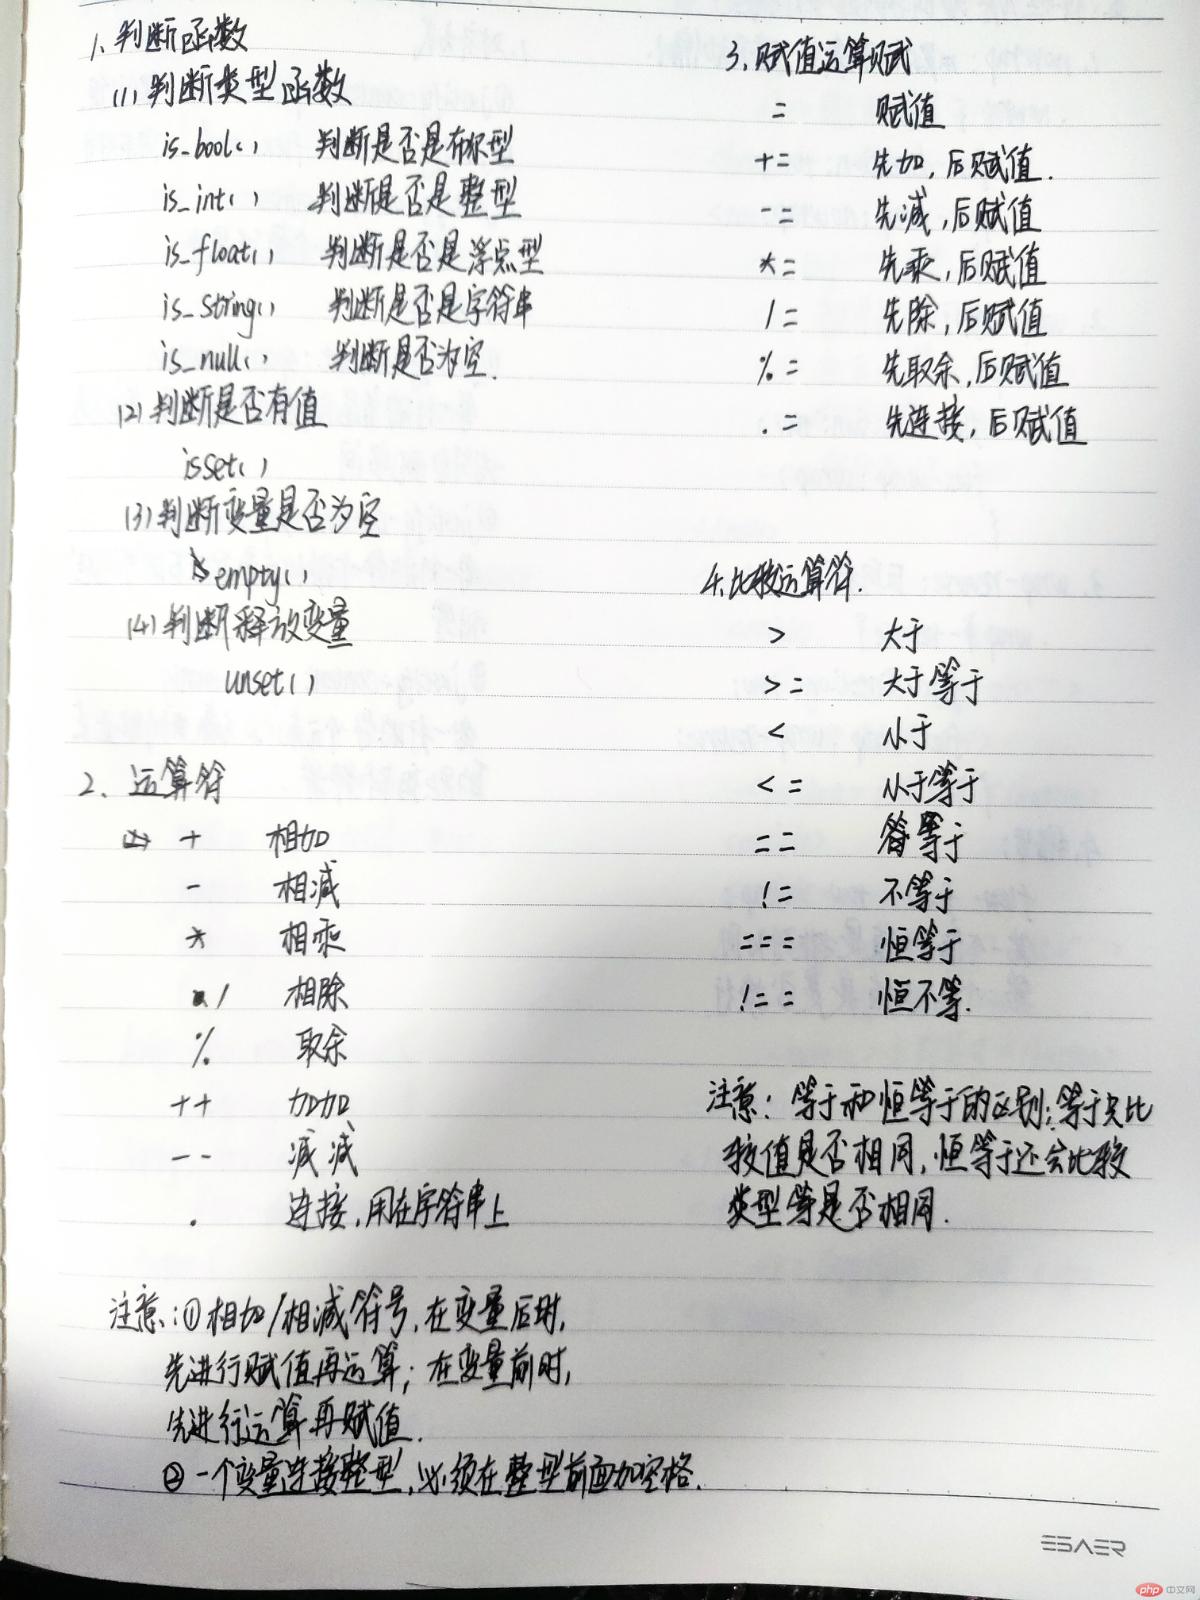 1、判断函数
(1) 判断类型函数
is_bool() 判断是否是布尔型
is_int() 判断是否是整型
is_float() 判断是否是浮点型
is_string() 判断是否是字符串
is_null() 判断是否为空.
(2) 判断是否有值
isset()
(3) 判断变量是否为空
empty()
(4) 判断释放变量
unset()
2、运算符
+ 相加
- 相减
* 相乘
/ 相除
% 取余
++ 加加
-- 减减
. 连接,用在字符串上
注意:① 相加/相减符号,在变量后时,
先进行赋值再运算;在变量前时,
先进行运算再赋值.
② 一个变量连接整型,必须在整型前面加空格.
3、赋值运算赋
= 赋值
+= 先加,后赋值.
-= 先减,后赋值
*= 先乘,后赋值
/= 先除,后赋值
%= 先取余,后赋值
.= 先连接,后赋值
4.比较运算符.
> 大于
>= 大于等于
< 小于
<= 小于等于
== 等于
!= 不等于
=== 恒等于
!== 恒不等.
注意:等于和恒等于的区别;等于只比
较值是否相同,恒等于还会比较
类型等是否相同.
ESAER
php 中文网